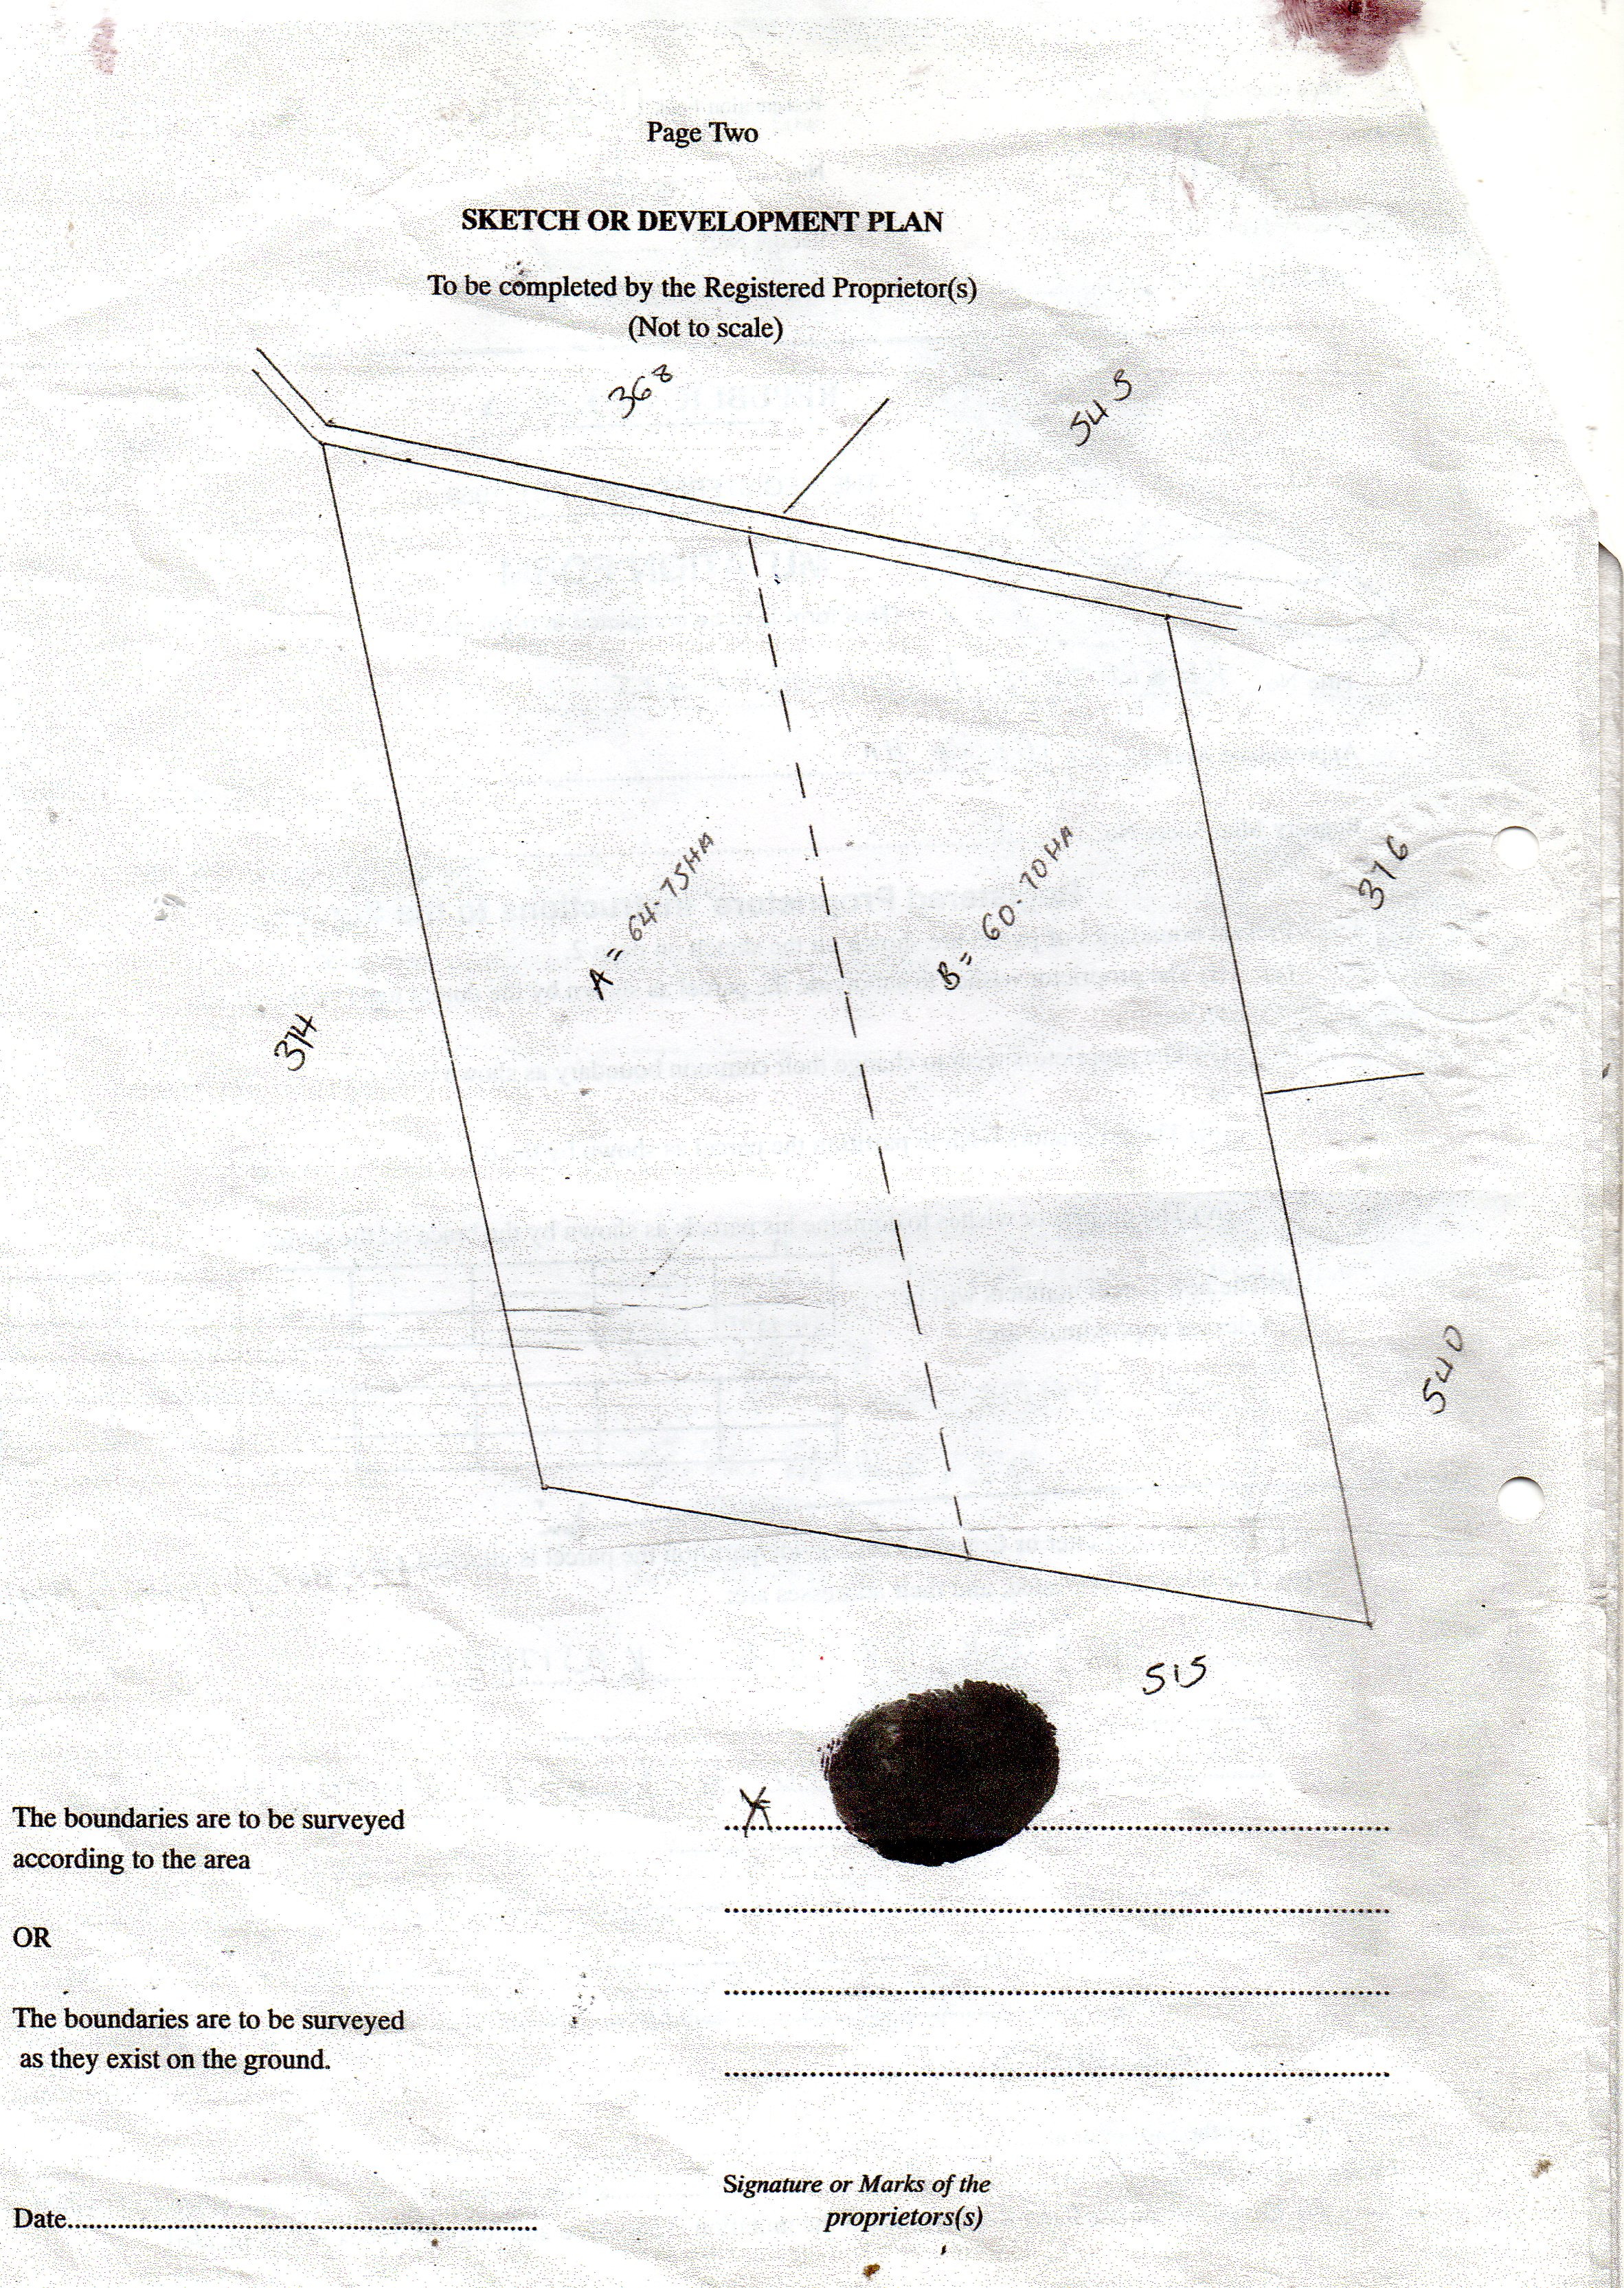 Page Two
SKETCH OR DEVELOPMENT PLAN
To be completed by the Registered Proprietor(s)
(Not to scale)
368
543
A = 64.75HA
B = 60.70HA
376
374
540
515
The boundaries are to be surveyed
according to the area
X
OR
The boundaries are to be surveyed
as they exist on the ground.
Signature or Marks of the
proprietors(s)
Date